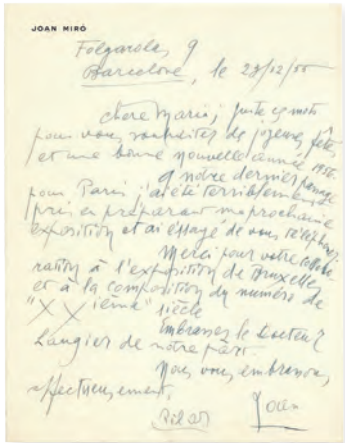 JOAN MIRÓ
Folgarola, 9
Barcelone, le 23/12/55
chère Maria, juste ces mots
pour vous souhaiter de joyeuses fêtes
et une bonne nouvelle année 1956.
A notre dernier passage
pour Paris j'ai été terriblement
pris en préparant ma prochaine
exposition et ai essayé de vous
Merci pour votre collabo-
ration à l'exposition de Bruxelles
et à la composition du numéro de
"XXième" siècle
Embrassez le Docteur
Laugier de notre part
Nous vous embrassons,
affectueusement.
Pilar Joan